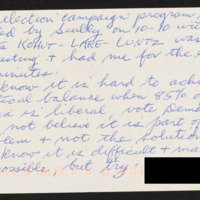 election campaign program,
ed by Scully on 10-10 wi
ts KOHUT-LAKE-LUNTZ was
esting & had me for the
minutes.
know it is hard to ach
tical balance when 85% o
ia is liberal, vote Dem
not believe it is part o
em & not the solution
know it is difficult & ma
possible, but try!